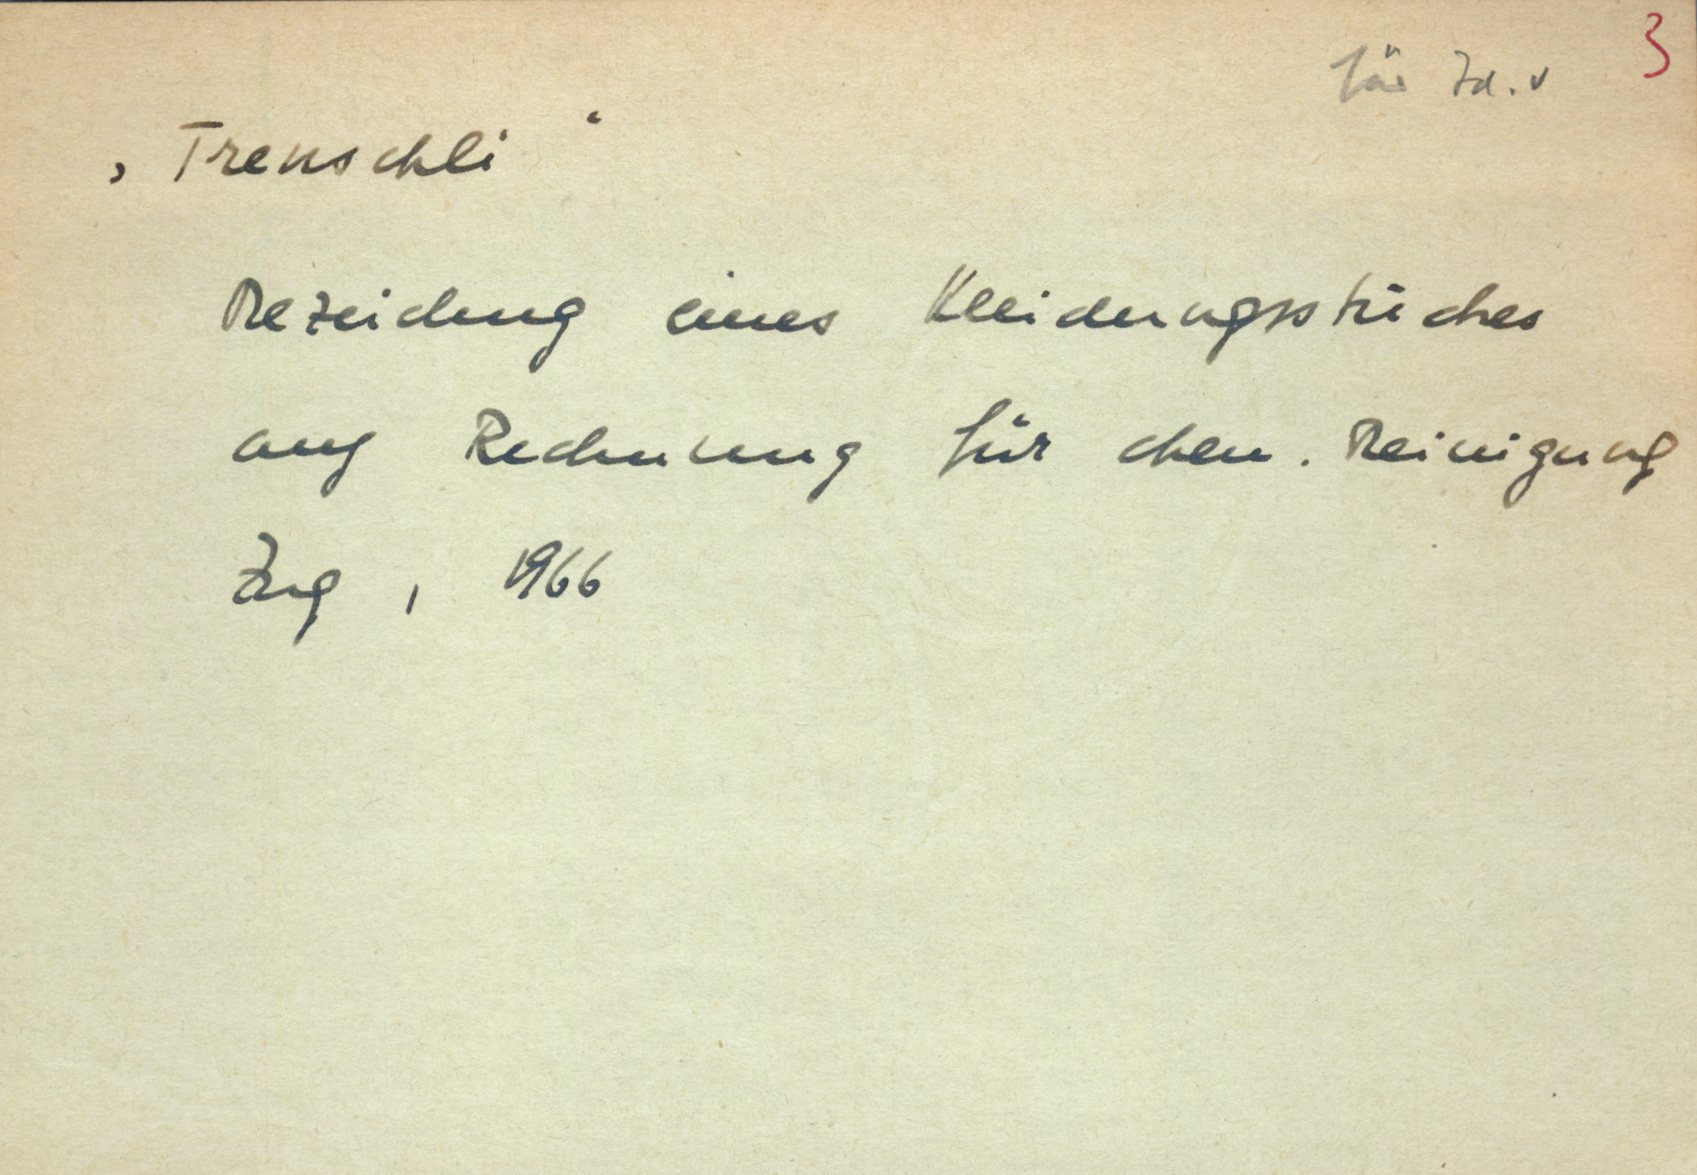 für Id. v
3
„Trenschli“
Bezeichnung eines Kleidungsstückes
auf Rechnung für chem. Reinigung
Zug, 1966